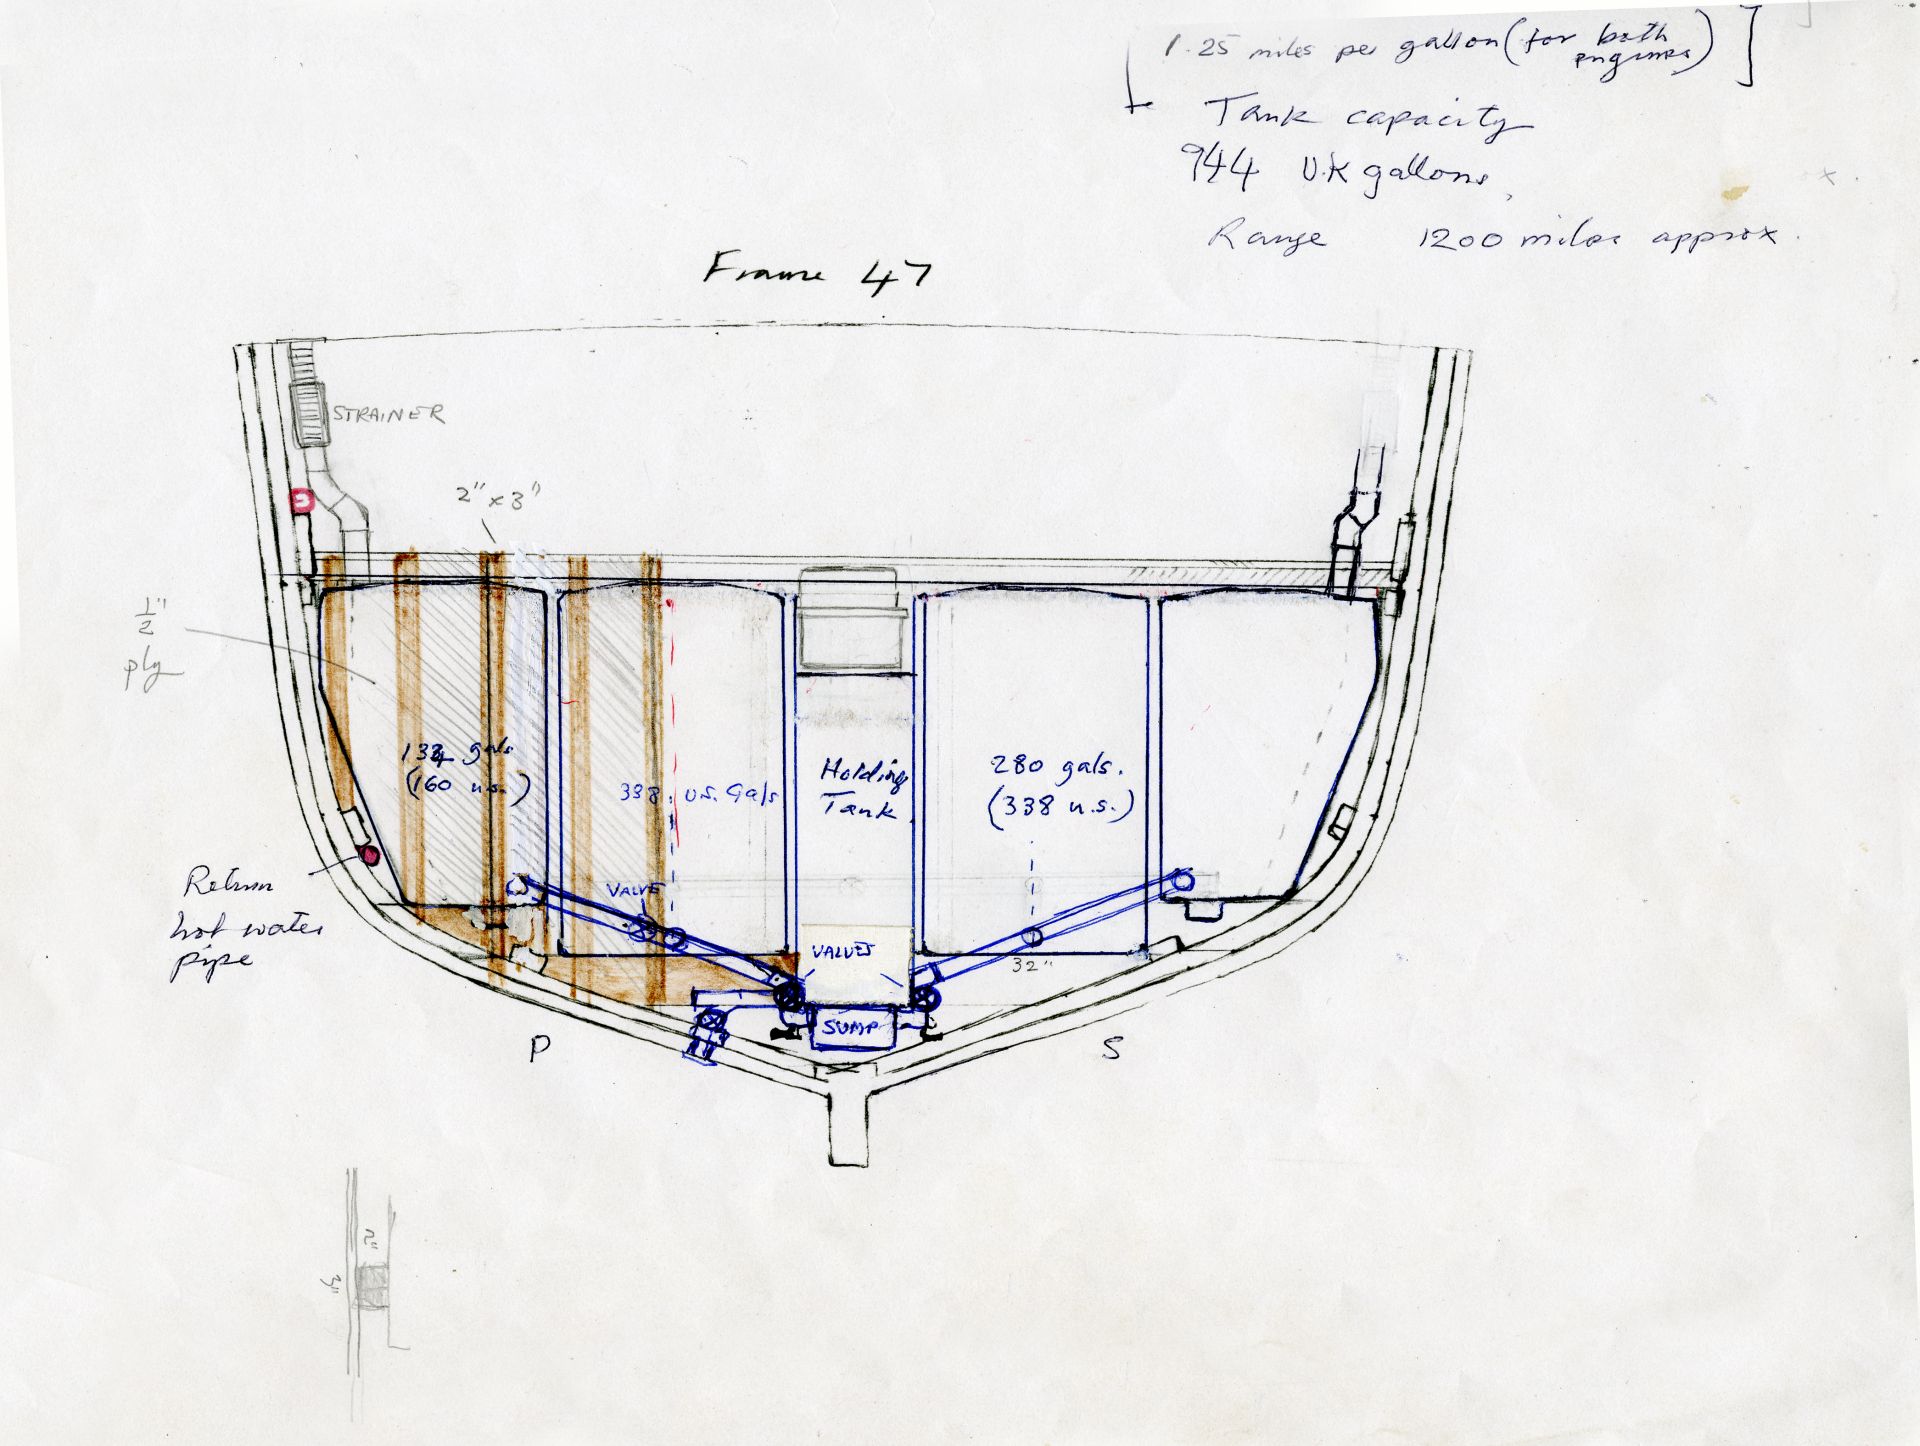 1.25 miles per gallon (for both
engines)
Tank capacity
944 U.K gallons
Range 1200 miles approx.
Frame 47
STRAINER
2" x 3"
1/2"
ply
gals.
(160 u.s.)
338 U.S. Gals
Holding
Tank
280 gals.
(338 u.s.)
Return
hot water
pipe
VALVE
VALVES
32"
SUMP
P
S
2"
3"